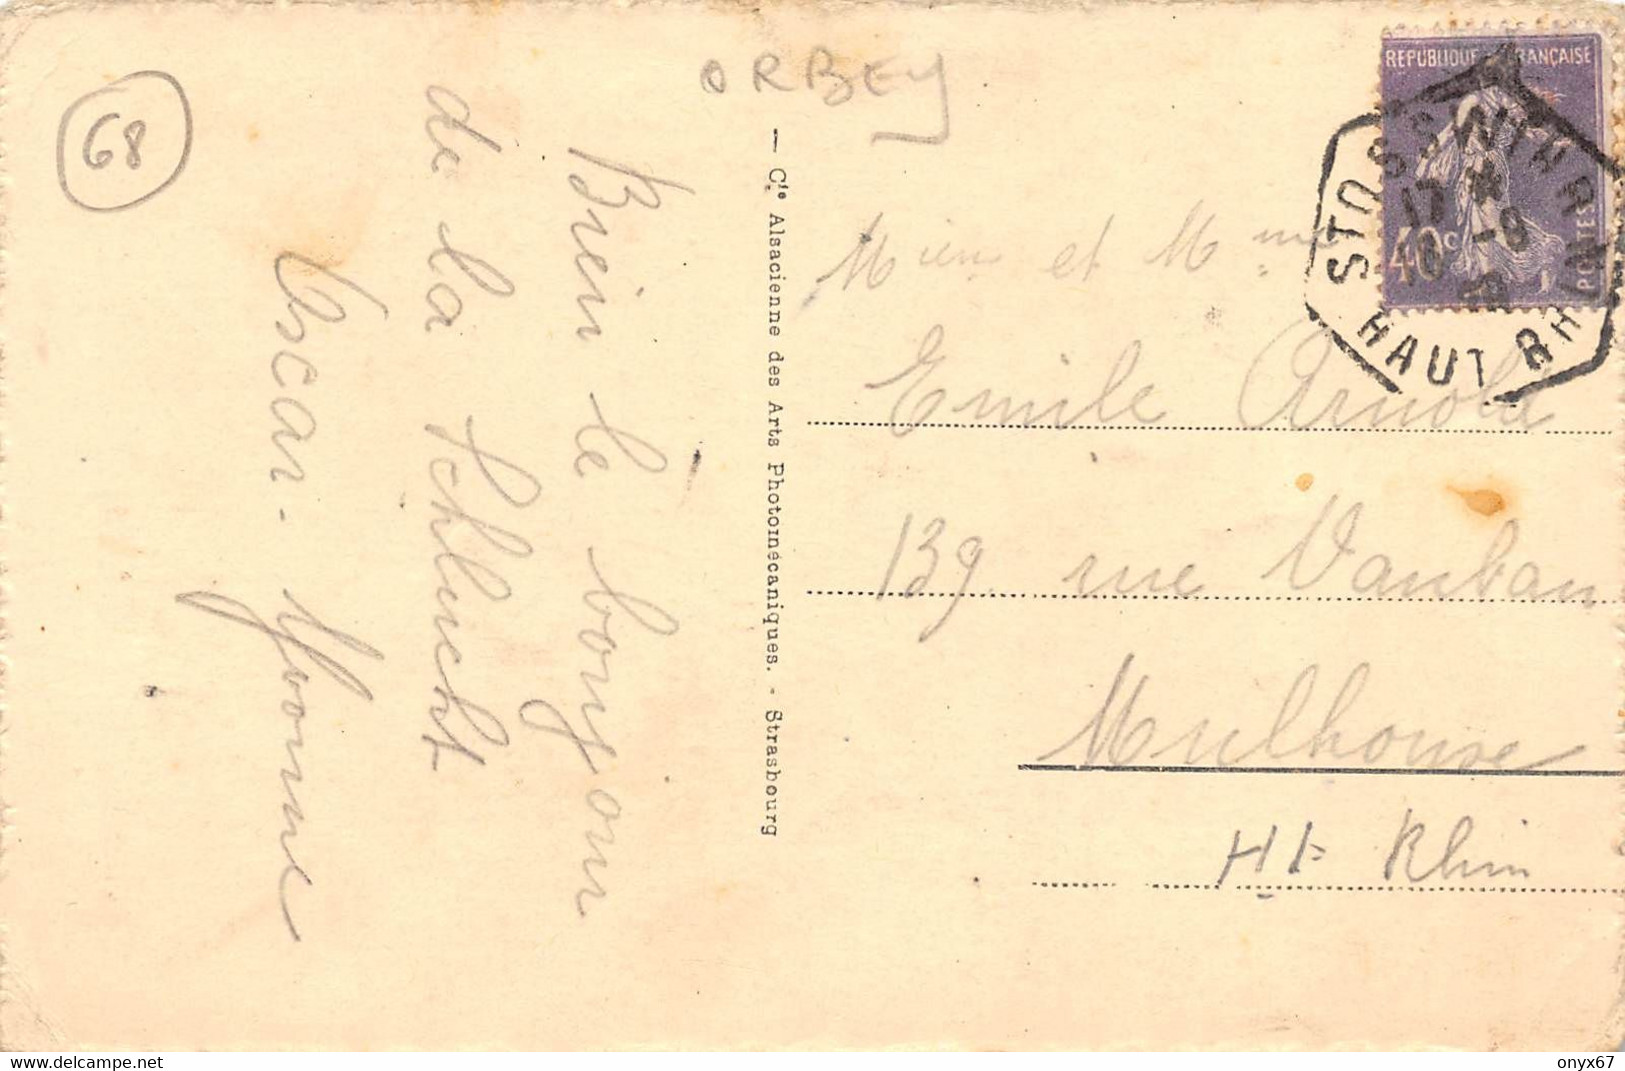 68
ORBEY
Bien le bonjour
de la Schlucht
Oscar. Yvonne
— Cie Alsacienne des Arts Photomécaniques. - Strasbourg
REPUBLIQUE FRANÇAISE
40c
POSTES
STOSSWIHR
17
HAUT RHIN
et Mme
Emile Arnold
139 rue Vauban
Mulhouse
Ht Rhin
delcampe.net
onyx67